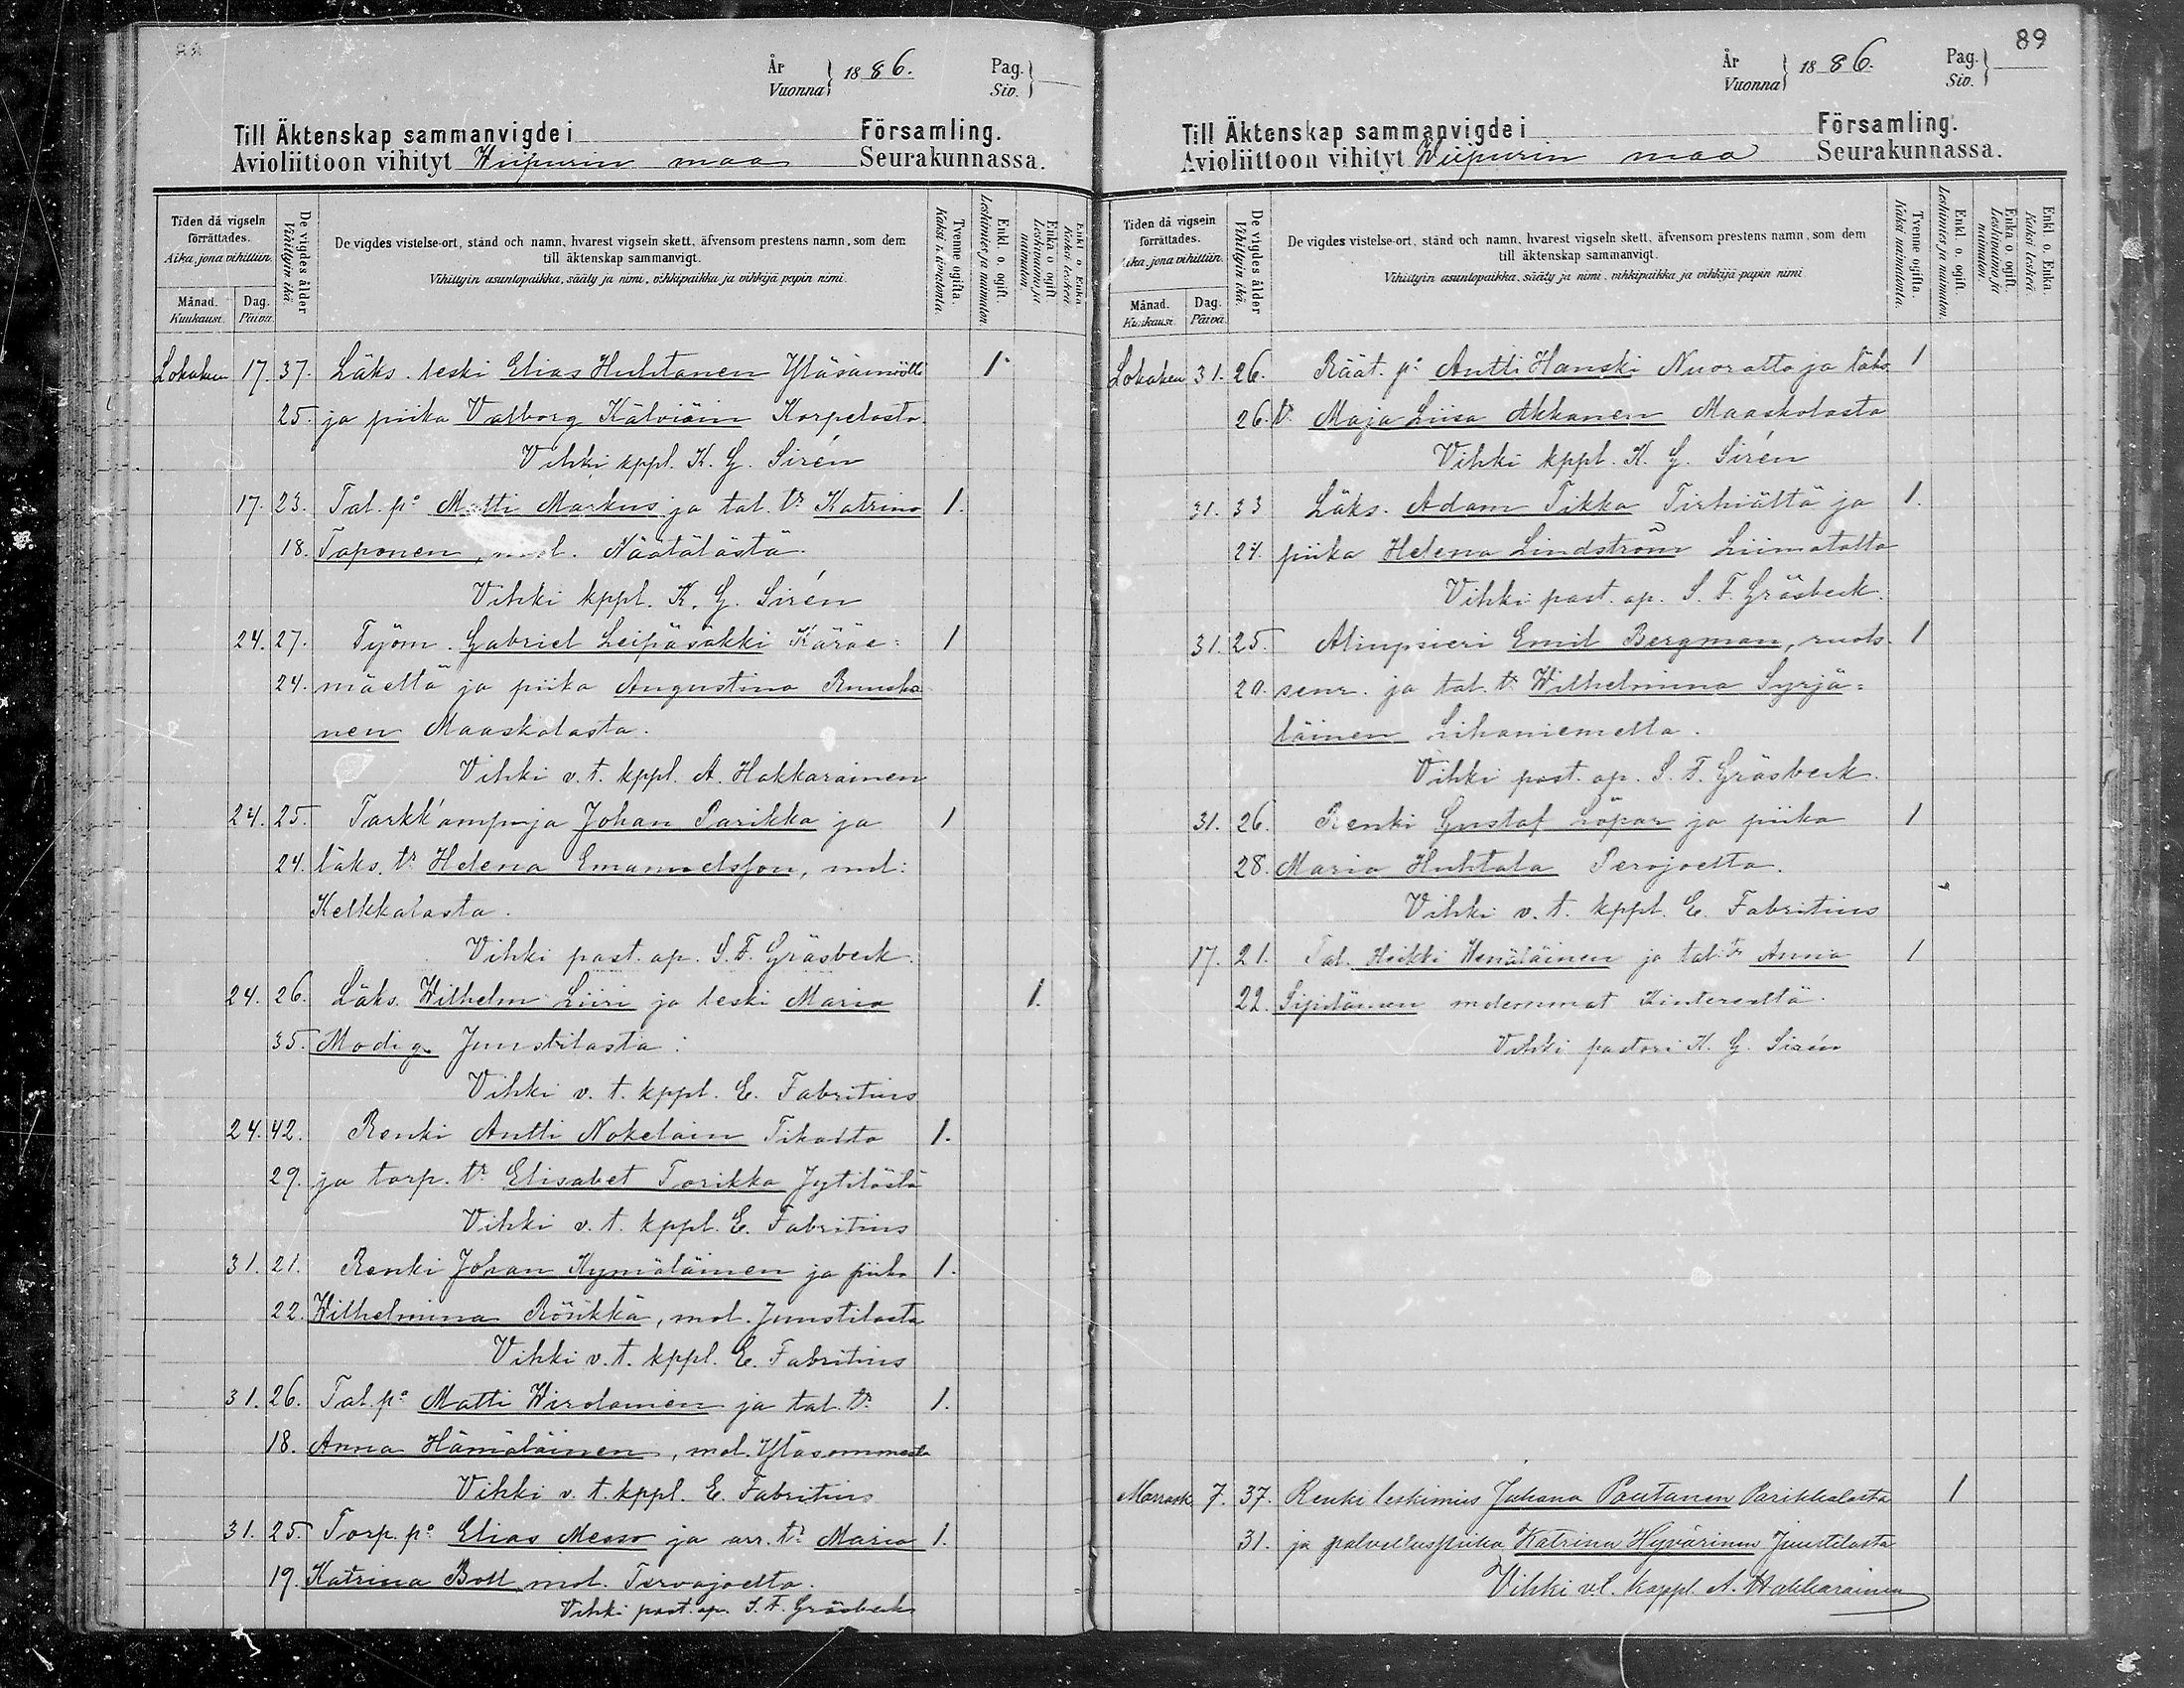 88
År
Vuonna 1886.
Pag.
Siv.
Till Äktenskap sammanvigde i Församling.
Avioliittoon vihityt Wiipurin maa Seurakunnassa.
Tiden då vigseln förrättades.
Aika, jona vihittiin.
Månad.
Kuukausi.
Dag.
Päivä.
De vigdes ålder
Vihittyin ikä.
De vigdes vistelse-ort, stånd och namn, hvarest vigseln skett, äfvensom prestens namn, som dem
till äktenskap sammanvigt.
Vihittyin asuntopaikka, sääty ja nimi, vihkipaikka ja vihkijä papin nimi.
Tvenne ogifta.
Kaksi naimatonta.
Enkl. o. ogift.
Leskimies ja naimaton.
Enka o. ogift
Leskivaimo ja naimaton.
Enkl. o. Enka
Kaksi leskeä.
Lokakuu 17. 37. Läks. leski Elias Huhtanen 1
25. ja piika Valborg Kälviäin Korpelasta.
Vihki kppl. K. G. Sirén
17. 23. Tal. p:a Matti Markus ja tal. tr Katrina 1.
18. Taponen, mol. Näätälästä.
Vihki kppl. K. G. Sirén
24. 27. Työm. Gabriel Leipäsäkki Käräe= 1
24. mäeltä ja piika Augustina Ruuska
nen Maaskolasta.
Vihki v. t. kppl. A. Hakkarainen
24. 25. Tarkk'ampuja Johan Parikka ja 1
24. läks. tr Helena Emanuelsson, mol:
Kelkkalasta.
Vihki past. ap. S. F. Gräsbeck.
24. 26. Läks. Wilhelm Liiri ja leski Maria 1.
35. Modig Juustilasta:
Vihki v. t. kppl. E. Fabritius
24. 42. Renki Antti Nokelain 1.
29. ja torp. tr Elisabet Torikka Jytilästä
Vihki v. t. kppl. E. Fabritius
31. 21. Renki Johan Kymäläinen ja piika 1.
22. Wilhelmina Rösikkä, mol. Juustilasta
Vihki v. t. kppl. E. Fabritius
31. 26. Tal. p:a Matti Wirolainen ja tal. tr 1.
18. Anna Hämäläinen, mol. Yläsommeelta
Vihki v. t. kppl. E. Fabritius
31. 25. Torp. p:a Elias Messo ja arr. tr Maria 1.
19. Katrina Boll mol. Tervajoelta.
Vihki past. ap. S. F. Gräsbeck
89
År
Vuonna 1886.
Pag.
Siv.
Till Äktenskap sammanvigde i Församling.
Avioliittoon vihityt Wiipurin maa Seurakunnassa.
Tiden då vigseln förrättades.
Aika, jona vihittiin.
Månad.
Kuukausi.
Dag.
Päivä.
De vigdes ålder
Vihittyin ikä.
De vigdes vistelse-ort, stånd och namn, hvarest vigseln skett, äfvensom prestens namn, som dem
till äktenskap sammanvigt.
Vihittyin asuntopaikka, sääty ja nimi, vihkipaikka ja vihkijä papin nimi
Tvenne ogifta.
Kaksi naimatonta.
Enkl. o. ogift.
Leskimies ja naimaton.
Enka o. ogift.
Leskivaimo ja naimaton.
Enkl. o. Enka.
Kaksi leskeä.
Lokakuu 31. 26. Räät. p:a Antti Hanski Nuoralta ja läks. 1
26. tr Maja Liisa Akkanen Maaskolasta
Vihki kppl. K. G. Sirén
31. 33 Läks. Adam Tikka Tirhiältä ja 1.
24. piika Helena Lindström Liimatalta
Vihki past. ap. S. F. Gräsbeck.
31. 25. Aliupsieri Emil Bergman, ruots. 1
20. seur. ja tal. tr Wilhelmina Syrjä=
läinen Lihaniemeltä.
Vihki past. ap. S. F. Gräsbeck.
31. 26. Renki Gustaf Löpar ja piika 1
28. Maria Huhtala Perojoelta.
Vihki v. t. kppl. E. Fabritius
17. 21. Tal. Heikki Wenäläinen ja tal. tr Anna 1
22. molemmat
Vihki pastori K. G. Sirén
Marrask. 7. 37. Renki leskimies Juhana Pautanen Parikkalasta 1
31. ja palveluspiika Katrina Hyvärinen Juustilasta
Vihki vt. kappl. A. Hakkarainen